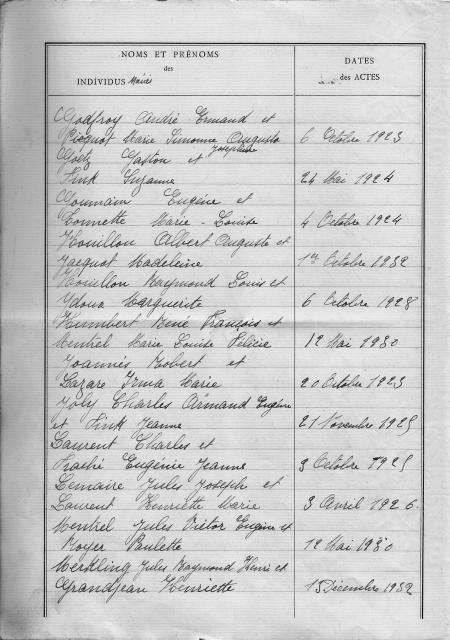 NOMS ET PRÉNOMS
des
INDIVIDUS Mariés
DATES
des ACTES
Godfroy André Ermand et
Picquot Marie Simonne Augusta 6 Octobre 1923
Goetz Gaston et Josephine
Fink Suzanne 24 Mai 1924
Goumain Eugène et
Tonnette Marie-Louise 4 Octobre 1924
Houillon Albert Auguste et
Jacquot Madeleine 1er Octobre 1932
Houillon Raymond Louis et
Idoux Marguerite 6 Octobre 1928
Humbert René François et
Mentrel Marie Louise Félicie 12 Mai 1930
Joannès Robert et
Lazare Irma Marie 20 Octobre 1923
Joly Charles Armand Eugène
et Fink Jeanne 21 Novembre 1925
Laurent Charles et
Eugénie Jeanne 3 Octobre 1925
Lemaire Jules Joseph et
Laurent Henriette Marie 3 Avril 1926
Mentrel Jules Victor Eugène et
Royer Paulette 12 Mai 1930
Merkling Jules Raymond Henri et
Grandjean Henriette 15 Décembre 1932